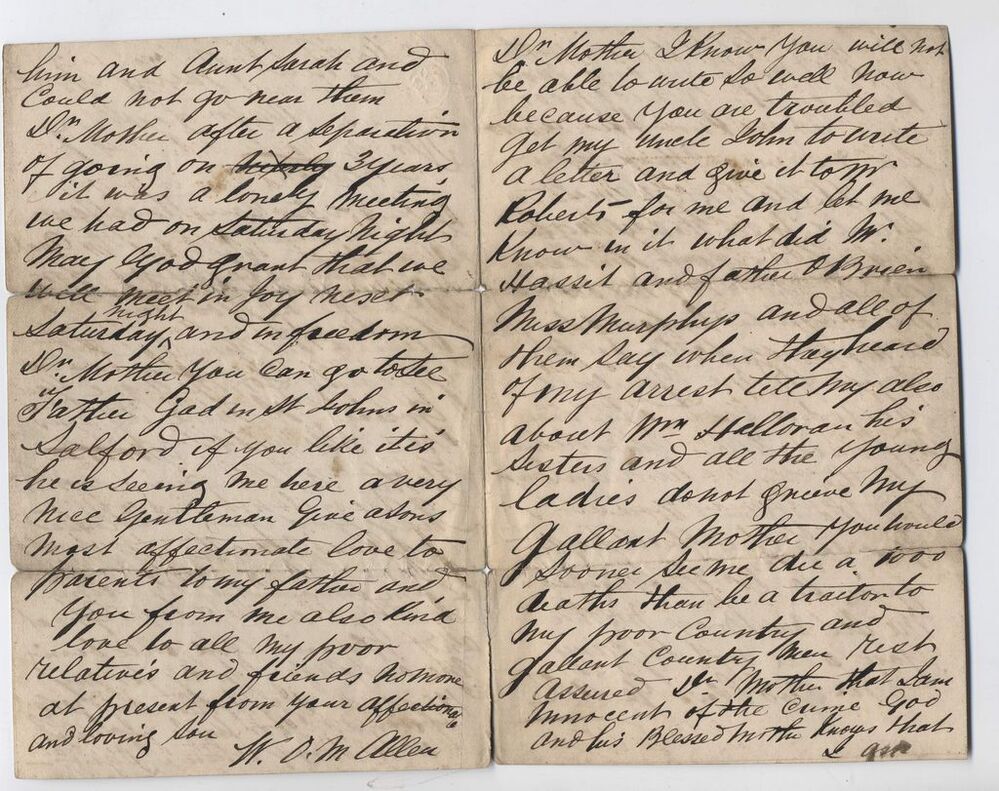 him and Aunt Sarah and
Could not go near them
Dr. Mother after a Separation
of going on nearly 3 years
it was a lonely Meeting
we had on Saturday Night
May God grant that we
will meet in Joy next
night
Saturday, and in freedom
Dr. Mother You Can go to See
Father Gad in St Johns in
Salford if you like it is
he is Seeing me here a very
nice Gentleman Give a Sons
most affectionate love to
parents to my father and
You from me also Kind
love to all my poor
relatives and friends no more
at present from your affectionate
and loving Son
W. O. M Allen
Dr. Mother I Know You will not
be able to write So well Now
because You are troubled
get my Uncle John to write
a letter and give it to Mr
Roberts for me and let me
Know in it what did Mr.
Hassit and father O Brien
Miss Murphys and all of
them Say when they heard
of my arrest tell my also
about Wm Halloran his
Sisters and all the Young
ladies do not grieve My
Gallant Mother You would
Sooner See me die a 1000
deaths than be a traitor to
my poor Country and
gallant Country Men rest
assured Dr Mother that I am
Innocent of the Crime God
and his Blessed Mother Knows that
I am